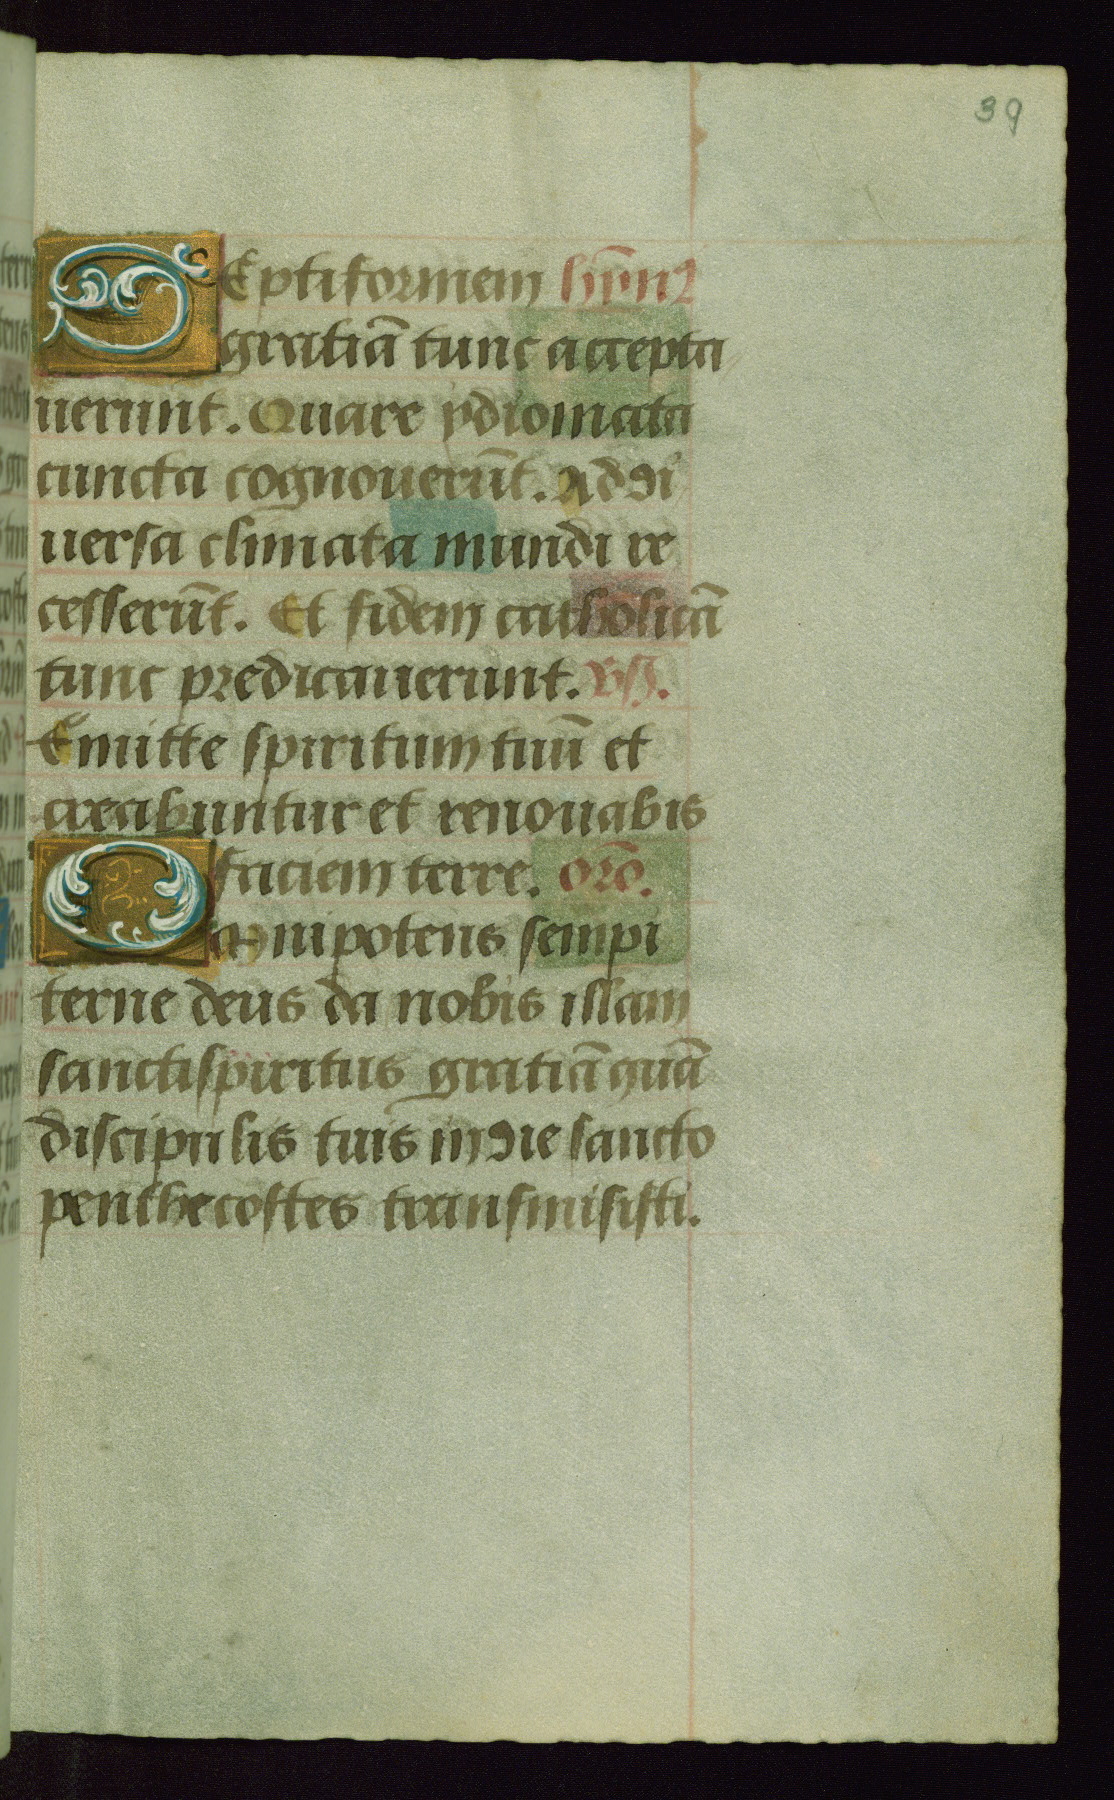 39
SEptiformem hỹmꝰ
gratiā tunc accepta
uerunt. Quare ydiomata
cuncta cognouerūt. Ad di
uersa climata mundi re
cesserūt. Et fidem catholicā
tunc predicauerunt. Vs.
Emitte spiritum tuū et
creabuntur et renouabis
faciem terre. orõ.
OMnipotens sempi
terne deus da nobis illam
sanctispiritus gratiā quā
discipulis tuis in die sancto
penthecostes transmisisti.